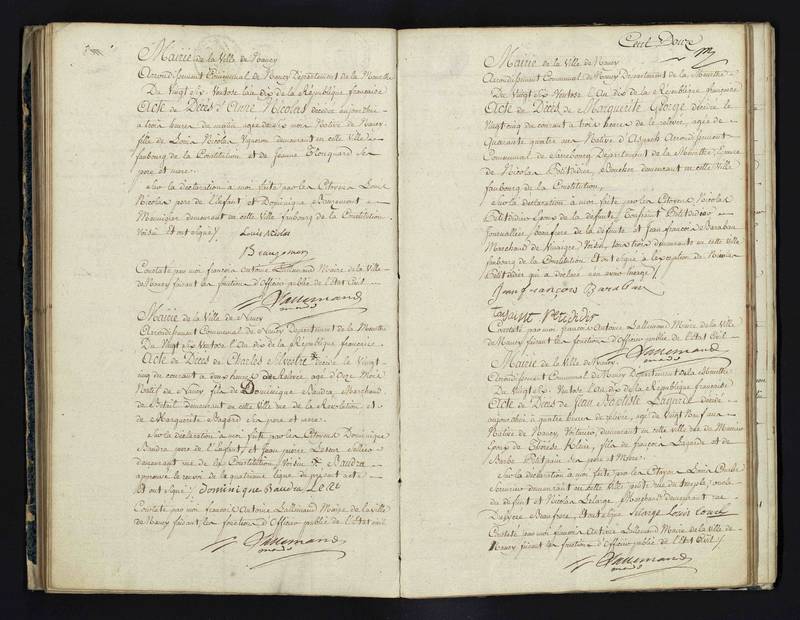 Mairie de la Ville de Nancy
Arrondissement Communal de Nancy Département de la Meurthe
Du Vingt Six Ventose l'an dix de la République française
Acte de Décès d' Anne Nicolas décédée aujourdhui
à trois heures du matin agée de Six mois Native de Nancy
fille de Louis Nicolas Vigneron demeurant en cette Ville
faubourg de la Constitution et de Jeanne Ses
pere et mere.
Sur la déclaration à moi faite par les Citoyens Louis
Nicolas pere de l'Enfant et Dominique Beaugemont
demeurant en cette Ville faubourg de la Constitution
Voisin Et ont signé /. Louis nicolas
Beaugemon
Constaté par moi françois Antoine Lallemand Maire de la Ville
de Nancy faisant les fonctions d'Officier public de l'Etat Civil
Lallemand
Mairie de la Ville de Nancy
Arrondissement Communal de Nancy Département de la Meurthe
Du Vingt Six Ventose l'an dix de la République française
Acte de Décès de Charles Silvestre décédé le Vingt
cinq du courant à heures de Relevée agé d'Onze Mois
Natif de Nancy fils de Dominique Baudra Marchand
de Détail demeurant en cette Ville rue de la Révolution et
de Marguerite Bagard Ses pere et mere.
Sur la déclaration à moi faite par les Citoyens Dominique
Baudra pere de l'Enfant et Jean pierre
demeurant rue de la Constitution Voisin Baudra
approuvé la rature de la quatrieme ligne du présent acte
Et ont signé /. Dominique Baudra
Constaté par moi françois Antoine Lallemand Maire de la Ville
de Nancy faisant les fonctions d'Officier public de l'Etat Civil
Lallemand
Cent Douze
Mairie de la Ville de Nancy
Arrondissement Communal de Nancy Département de la Meurthe
Du Vingt Six Ventose l'an dix de la République française
Acte de Décès de Marguerite George décédée le
Vingt cinq du courant à trois heures de relevée, agée de
Quarante quatre ans Native d' Arrondissement
Communal de Sarrebourg Département de la Meurthe, Epouse
de Nicolas Petitdidier, demeurant en cette Ville
faubourg de la Constitution,
Sur la déclaration à moi faite par les Citoyens Nicolas
Petitdidier Epoux de la défunte, Toussaint Petitdidier
Journalier, beaufrere de la défunte et Jean françois Baraban
Marchand de Vinaigre Voisin, tous trois demeurants en cette Ville
faubourg de la Constitution Et ont signé à l'exception de Nicolas
Petitdidier qui a déclaré n'en avoir l'usage /.
Jean françois Baraban
Constaté par moi françois Antoine Lallemand Maire de la Ville
de Nancy faisant les fonctions d'Officier public de l'Etat Civil
Lallemand
Mairie de la Ville de Nancy
Arrondissement Communal de Nancy Département de la Meurthe
Du Vingt Six Ventose l'an dix de la République française
Acte de Décès de Jean Baptiste Lagarde décédé
aujourdhui à quatre heures de relevée, agé de Vingt Neuf ans
Native de Nancy, Voiturier, demeurant en cette Ville rue du
Epoux de Thérèse Klein, fils de françois Lagarde et de
Barbe Ses pere et Mere.
Sur la déclaration à moi faite par les Citoyens Louis
demeurant en cette Ville oncle
du défunt et Nicolas Lelarge Marchand demeurant rue
Beaufrere, Et ont signé Lelarge Louis
Constaté par moi françois Antoine Lallemand Maire de la Ville de
Nancy faisant les fonctions d'Officier public de l'Etat Civil /.
Lallemand